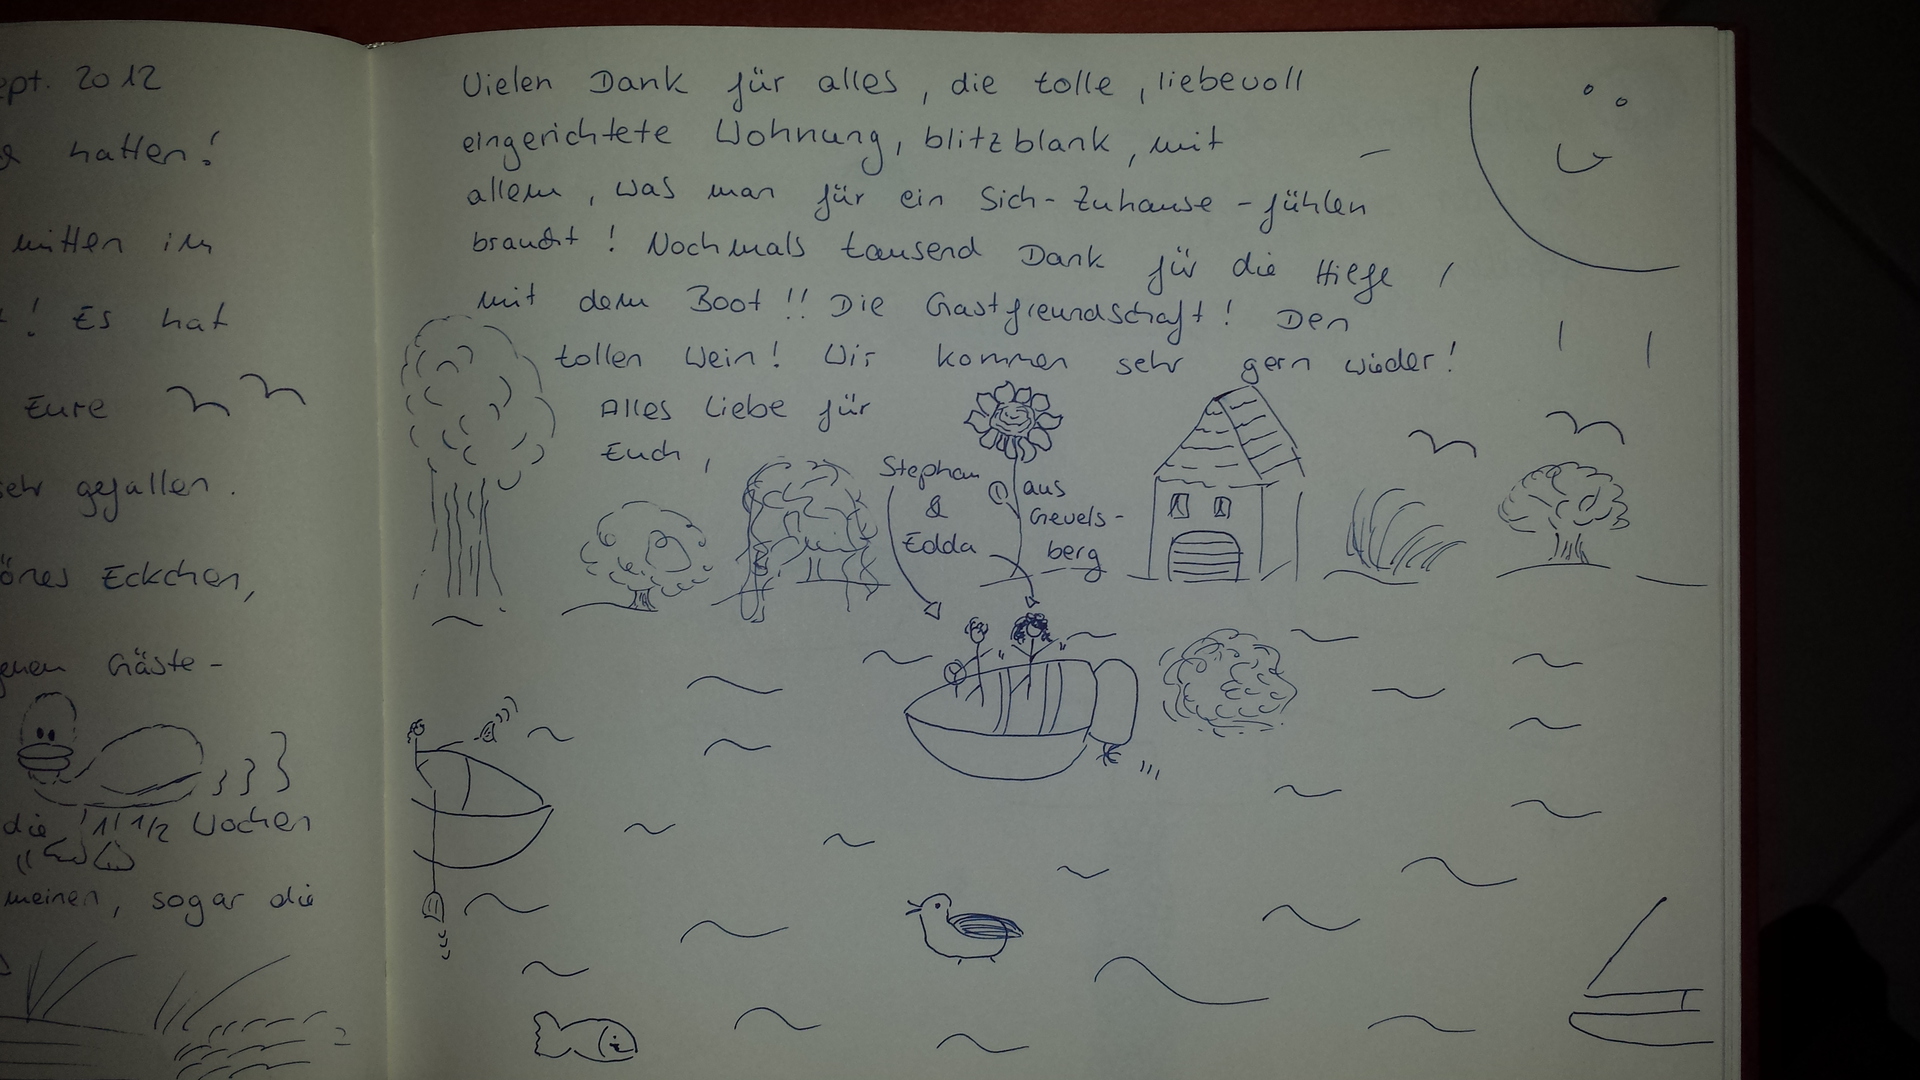 ept. 2012
hatten!
mitten im
! Es hat
Eure
sehr gefallen.
önes Eckchen,
Gäste-
die 1 1/2 Wochen
meinen, sogar die
Vielen Dank für alles, die tolle, liebevoll
eingerichtete Wohnung, blitzblank, mit
allem, was man für ein Sich-Zuhause-fühlen
braucht! Nochmals tausend Dank für die Hilfe
mit dem Boot!! Die Gastfreundschaft! Den
tollen Wein! Wir kommen sehr gern wieder!
Alles Liebe für
Euch,
Stephan
&
Edda
aus
Gevels-
berg